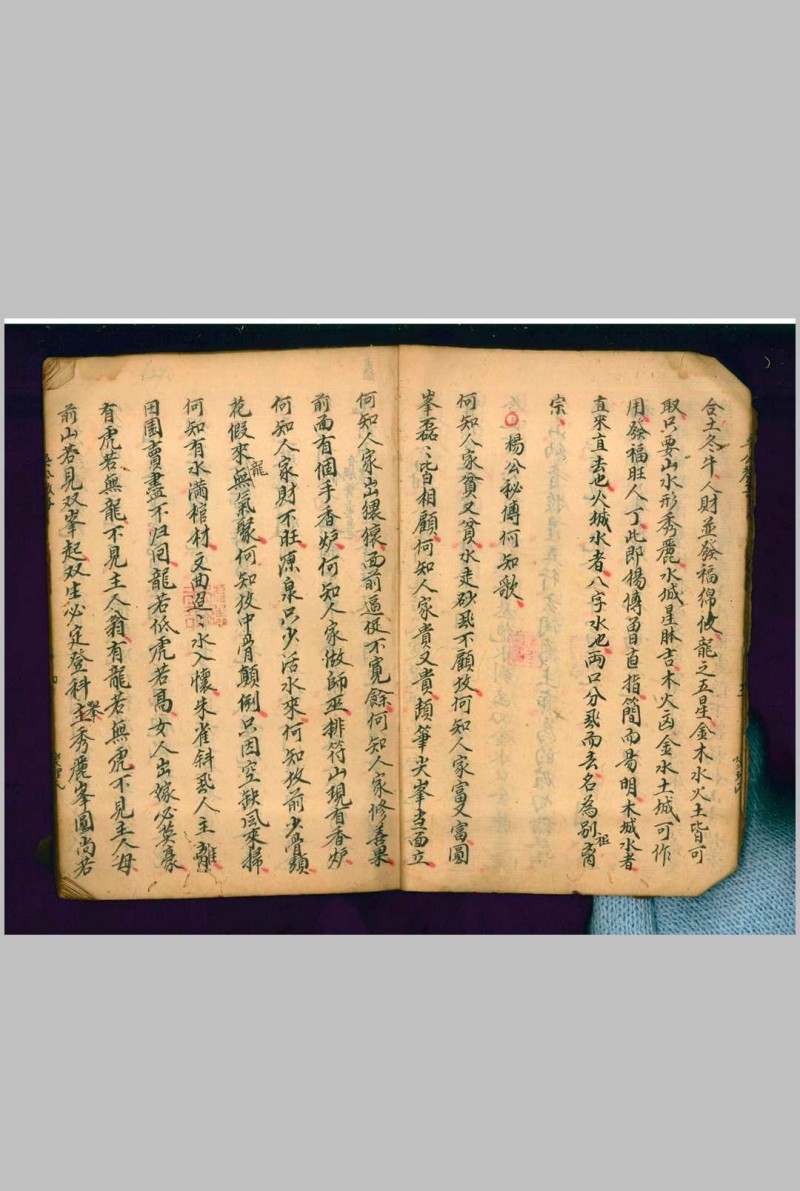 合土冬牛人財並發福綿攸龍之五星金木水火土皆可
取只要山水形秀麗水城星脉吉木火凶金水土城可作
用發福旺人丁此即楊傳曾直指簡而易明木城水者
直來直去也火城水者八字水也両口分飛而去名為別祖离
宗
楊公秘傳何知歌
何知人家貧又貧水走砂飛不顧坟何知人家富又富圓
峯磊〻皆相顧何知人家貴又貴頭筆尖峯当面立
何知人家出猥獕面前逼促不寬餘何知人家修善果
前面有個手香炉何知人家做師巫排符山現有香炉
何知人家財不旺凉泉只少活水來何知坟前少骨頭
花假來龍無氣聚何知坟中骨顛倒只因空缺風來掃
何知有水滿棺材文曲迢〻水入懷朱雀斜飛人主離
田園賣盡不归回龍若低虎若高女人出嫁必英豪
有虎若無龍不見主人翁有龍若無虎不見主人母
前山若見双峯起双生必定登科舉主秀麗峯圓尚若